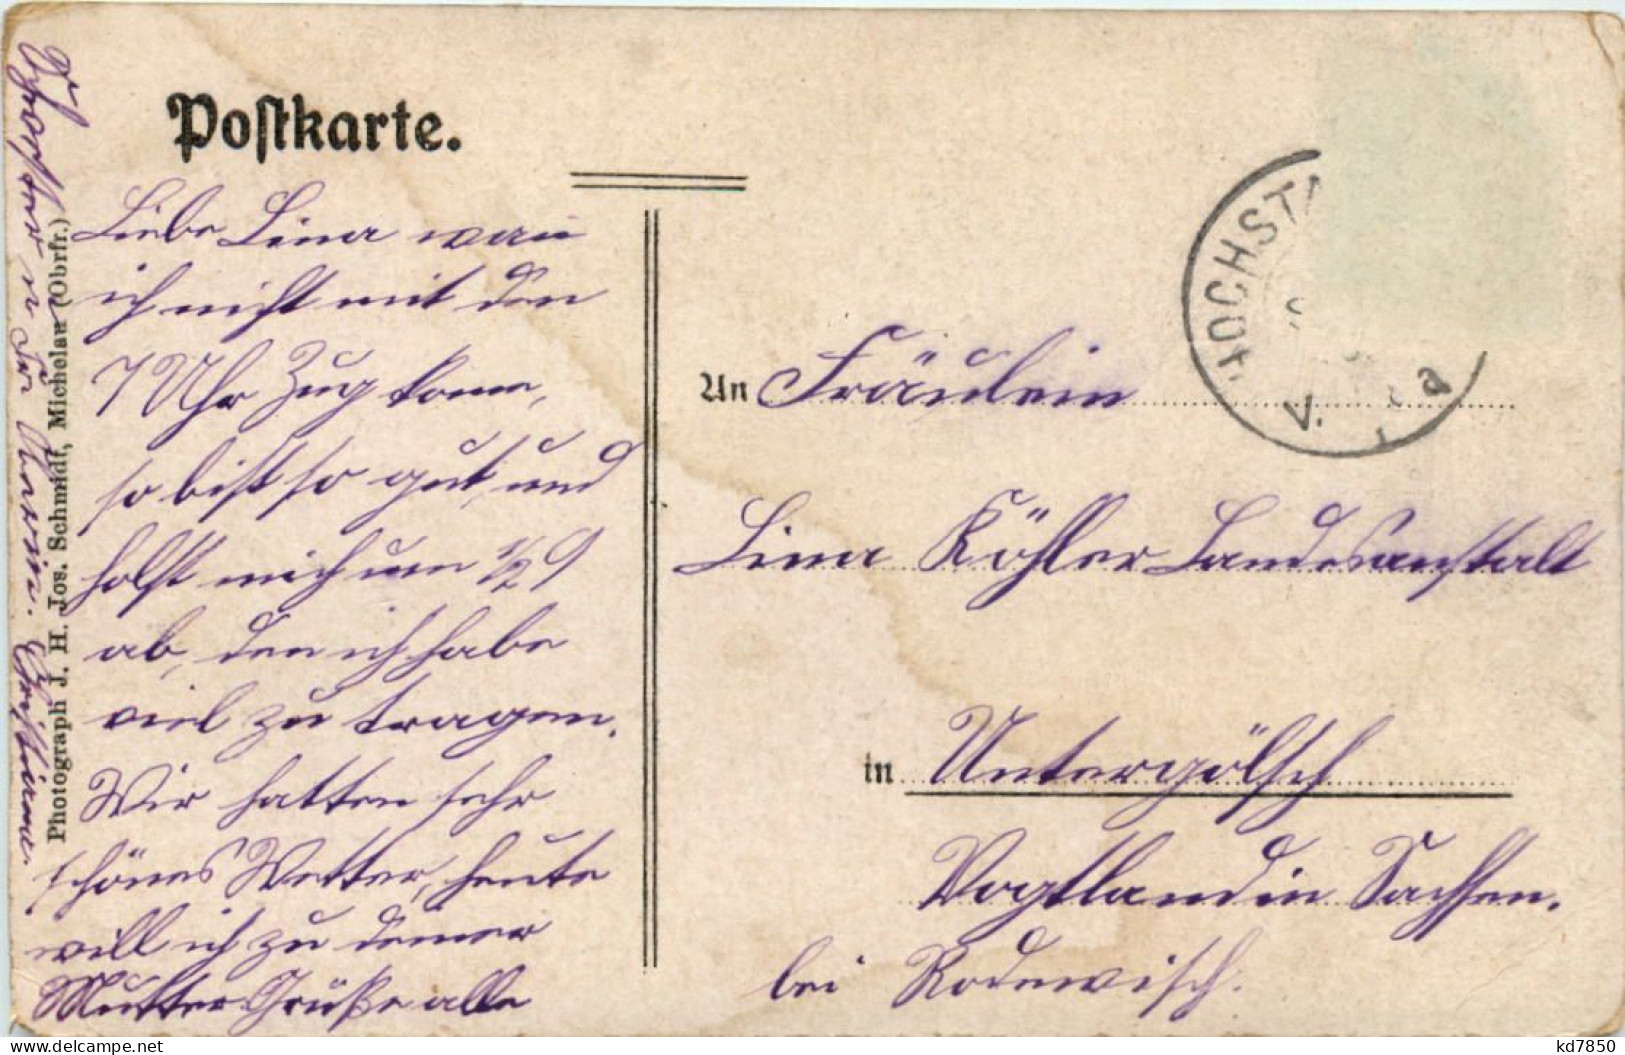 Postkarte.
Liebe Lina wan
ich nicht mit den
7 Uhr Zug komm,
so bist so gut, und
holst mich um 1/2 9
ab, den ich habe
viel zu tragen.
Wir hatten sehr
schönes Wetter, heute
will ich zu deiner
Mutter Grüße alle
Christiane.
Photograph J. H. Jos. Schmidt, Michelau (Obrfr.)
HOCHSTA
V.
a
An Fräulein
Lina Köhler Landesanstalt
in Untergölsch
Vogtland in Sachsen.
bei Rodewisch.
kd7850
www.delcampe.net